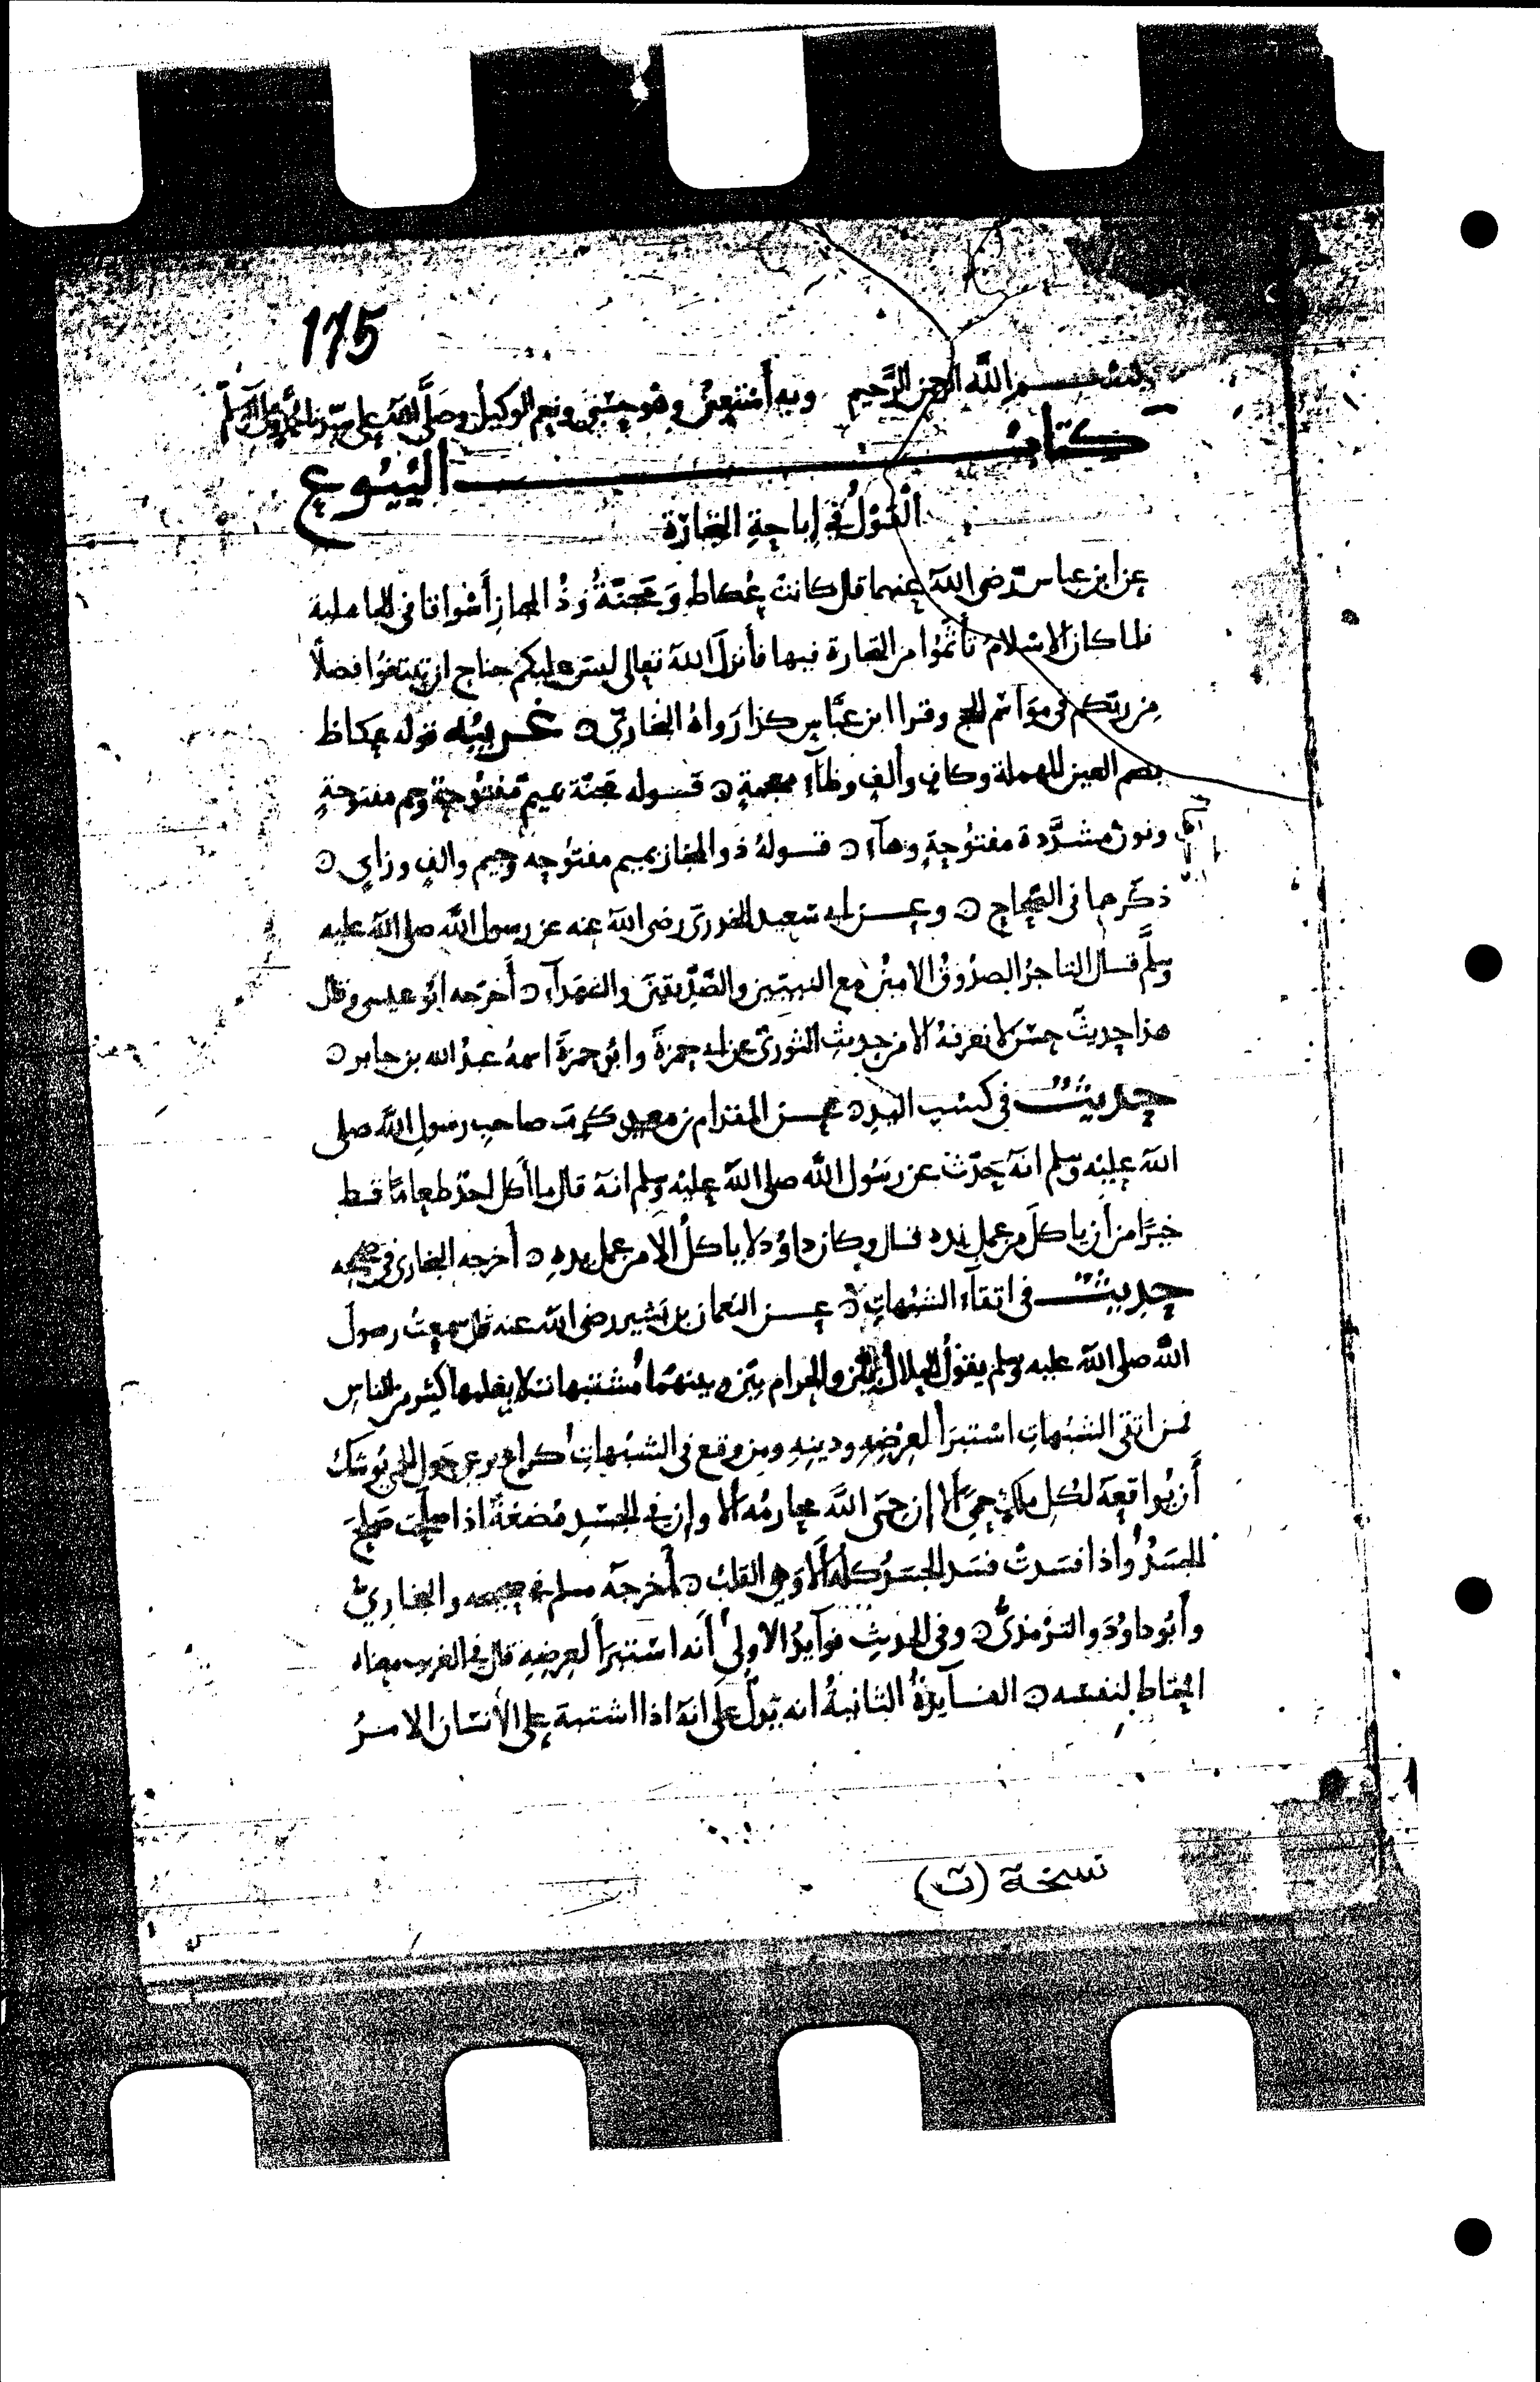 175
بسم الله الرحمن الرحيم وبه أستعين وهو حسبي ونعم الوكيل وصلى الله على سيدنا محمد وعلى آله وسلم
كتاب البيوع
القول في إباحة التجارة
عن ابن عباس رضي الله عنهما قال كانت عكاظ ومجنة وذُ المجاز أسواقا في الجاهلية
فلما كان الإسلام تأثموا من التجارة فيها فأنزل الله تعالى ليس عليكم جناح ان تبتغوا فضلاً
من ربكم في مواسم الحج وقرا ابن عباس كذا رواه البخاري ه غريبه قوله عكاظ
بضم العين المهملة وكاف وألف وظآء معجمة ه قوله مجنة بميم مفتوحة وجيم مفتوحةٍ
ونون مشددة مفتوحةٍ وهآء ه قوله ذو المجاز بميم مفتوحه وجيم والف وزاي ه
ذكرها في الصحاح ه وعن ابي سعيد الخدري رضي الله عنه عن رسول الله صلى الله عليه
وسلم قال التاجر الصدوق الامين مع النبيين والصديقين والشهدآء ه أخرجه ابو عيسى وقال
هذا حديث حسن لا نعرفه الا من حديث الثوري عن ابي حمزة وابو حمزة اسمه عبد الله بن جابر ه
حديث في كسب اليد ه عن المقدام بن معدي كرب صاحب رسول الله صلى
الله عليه وسلم انه حدث عن رسول الله صلى الله عليه وسلم انه قال ما أكل احد طعاما قط
خيرًا من أن ياكل من عمل يده قال وكان داود لا ياكل الا من عمل يده ه أخرجه البخاري في صحيحه
حديث في اتقآء الشبهات ه عن النعمان بن بشير رضي الله عنه قال سمعت رسول
الله صلى الله عليه وسلم يقول الحلال بين والحرام بين وبينهما مشتبهات لا يعلمها كثير من الناس
فمن اتقى الشبهات استبرأ لعرضه ودينه ومن وقع في الشبهات كراع يرعى حول الحمى يوشك
أن يواقعه لكل ملك حمى ألا إن حمى الله محارمه ألا وإن في الجسد مضغة اذا صلحت صلح
الجسد وإذا فسدت فسد الجسد كله ألا وهي القلب ه أخرجه مسلم في صحيحه والبخاري
وأبو داود والترمذي ه وفي الحديث فوآيد الاولى أنه استبرأ لعرضه قال في الغريب معناه
احتاط لنفسه ه الفآيدة الثانية انه يدل على انه اذا اشتبه على الانسان الامر
نسخة (ت)